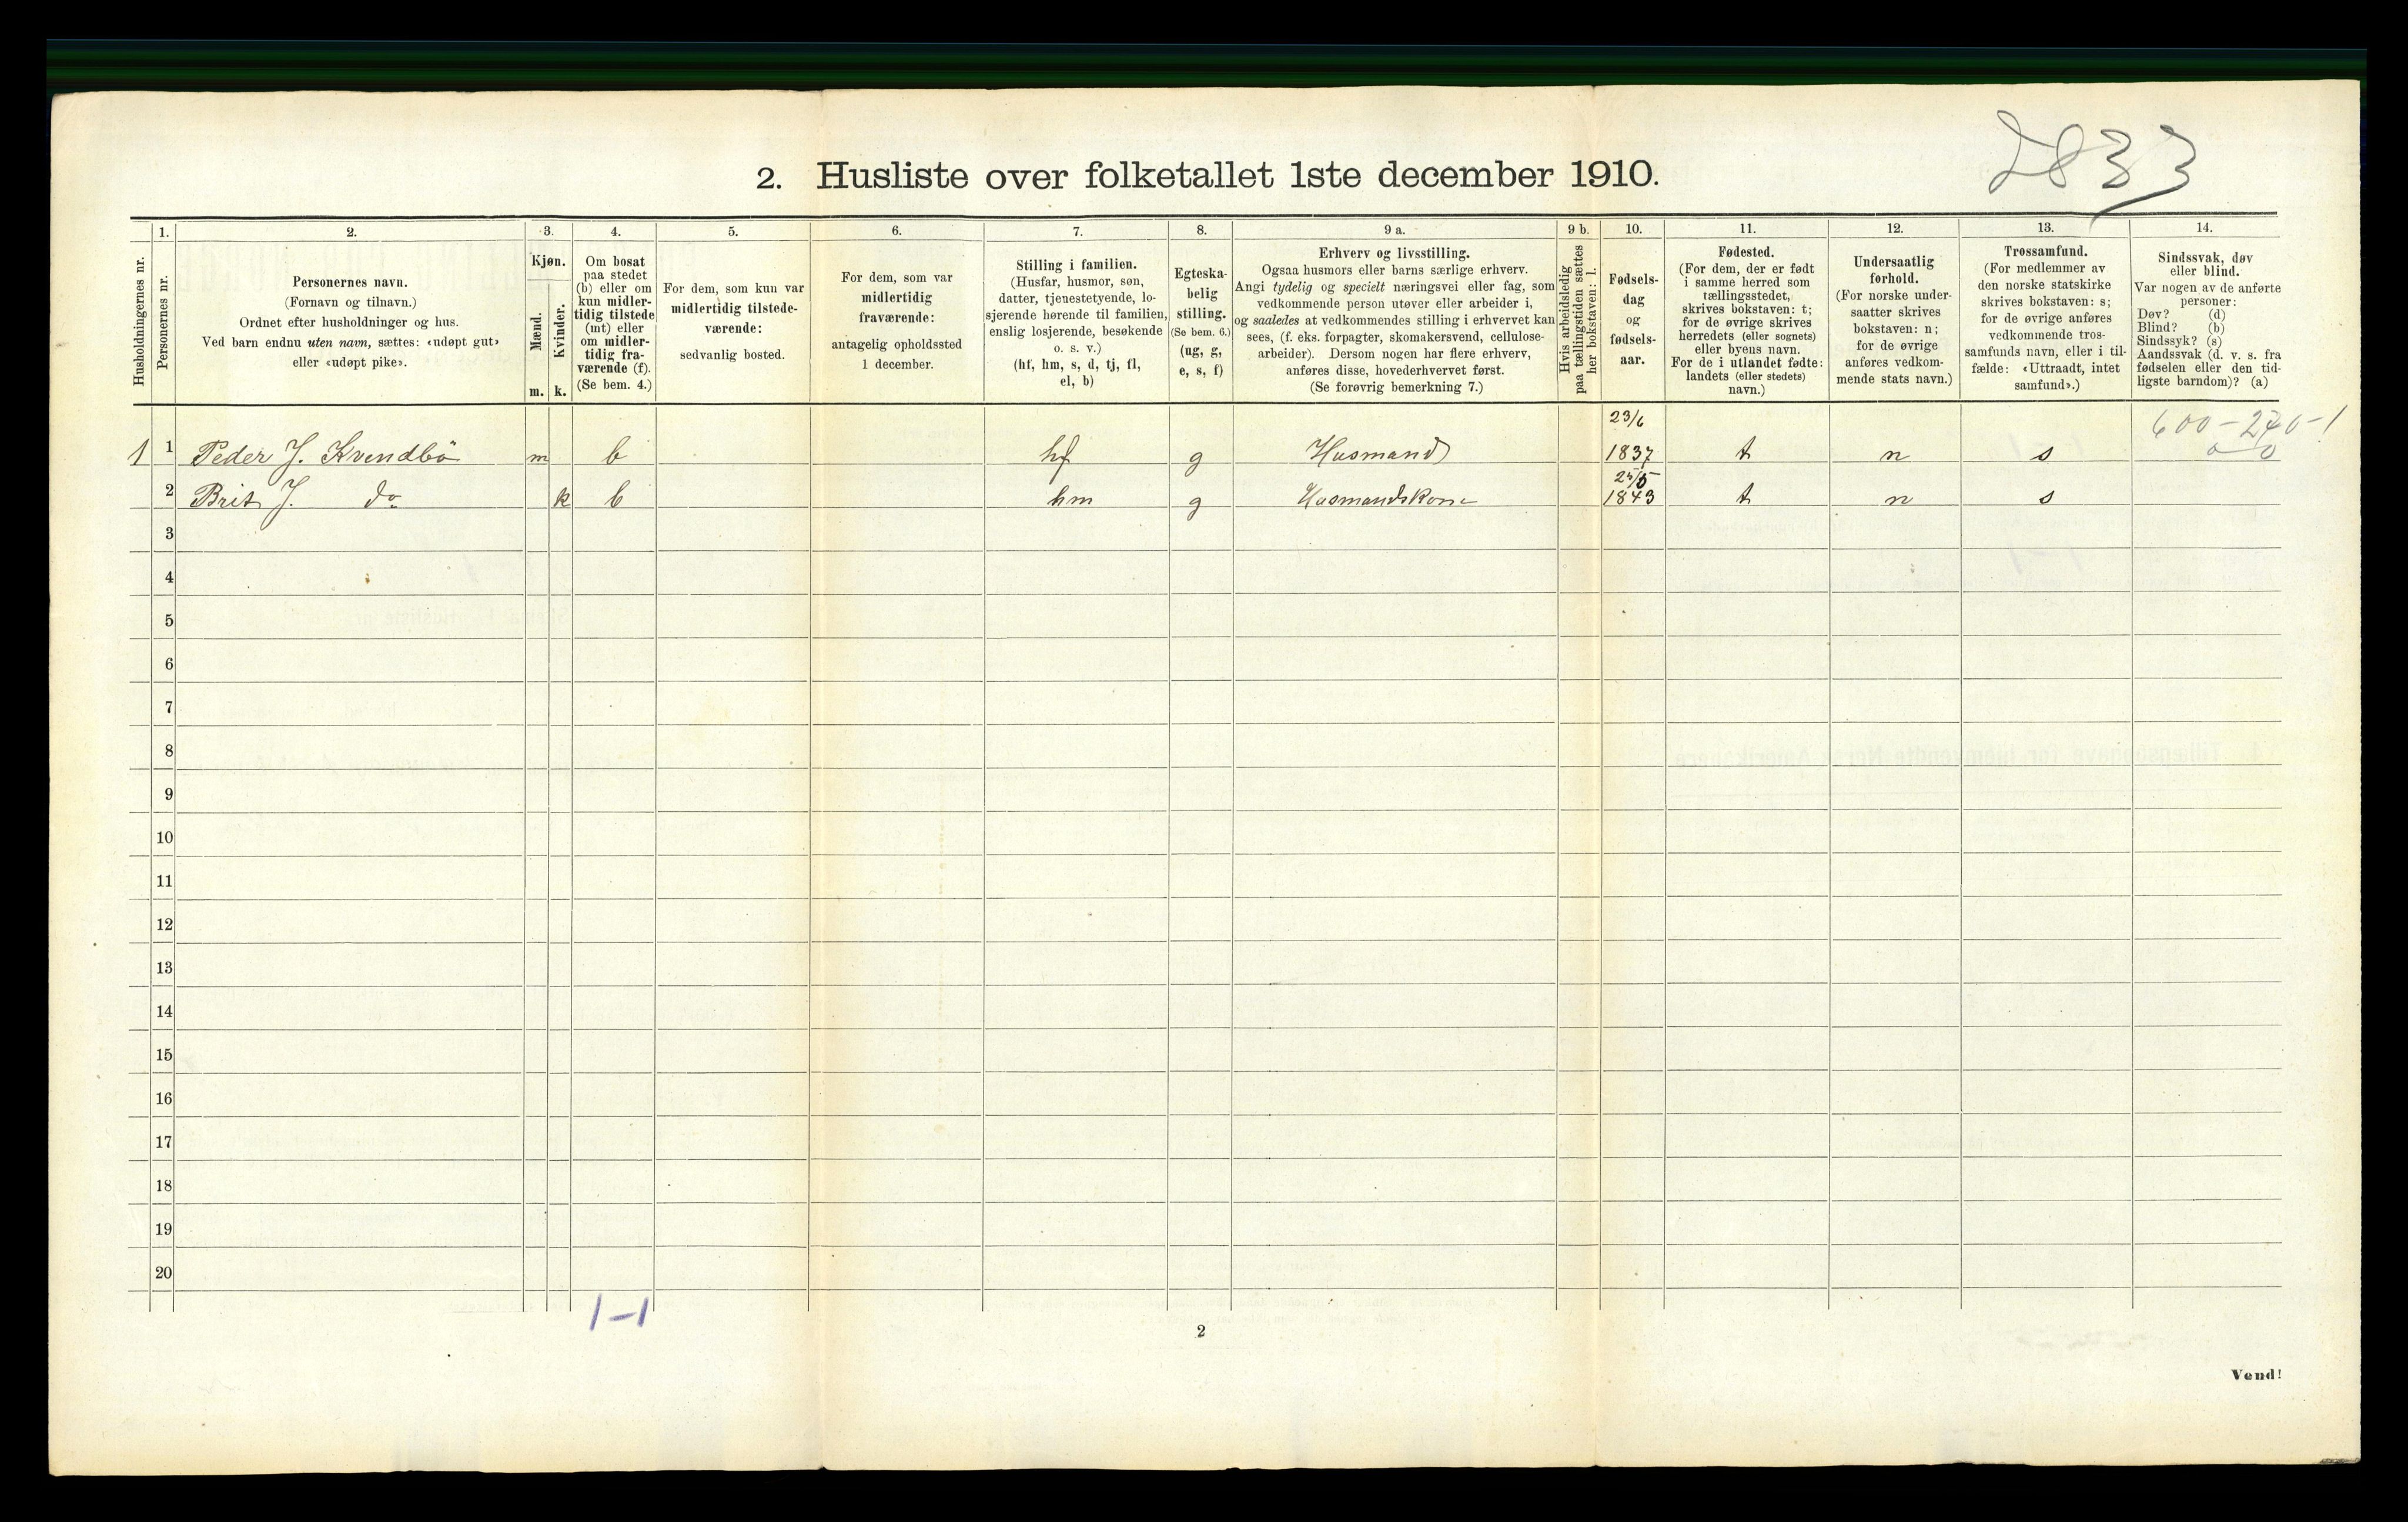 2833
2. Husliste over folketallet 1ste december 1910.
Husholdningernes nr.
1.
Personernes nr.
2.
Personernes navn.
(Fornavn og tilnavn.)
Ordnet efter husholdninger og hus.
Ved barn endnu uten navn, sættes: «udøpt gut»
eller «udøpt pike».
3.
Kjøn.
Mænd.
m.
Kvinder.
k.
4.
Om bosat
paa stedet
(b) eller om
kun midler-
tidig tilstede
(mt) eller
om midler-
tidig fra-
værende (f).
(Se bem. 4.)
5.
For dem, som kun var
midlertidig tilstede-
værende:
sedvanlig bosted.
6.
For dem, som var
midlertidig
fraværende:
antagelig opholdssted
1 december.
7.
Stilling i familien.
(Husfar, husmor, søn,
datter, tjenestetyende, lo-
sjerende hørende til familien,
enslig losjerende, besøkende
o. s. v.)
(hf, hm, s, d, tj, fl,
el, b)
8.
Egteska-
belig
stilling.
(Se bem. 6.)
(ug, g,
e, s, f)
9 a.
Erhverv og livsstilling.
Ogsaa husmors eller barns særlige erhverv.
Angi tydelig og specielt næringsvei eller fag, som
vedkommende person utøver eller arbeider i,
og saaledes at vedkommendes stilling i erhvervet kan
sees, (f. eks. forpagter, skomakersvend, cellulose-
arbeider). Dersom nogen har flere erhverv,
anføres disse, hovederhvervet først.
(Se forøvrig bemerkning 7.)
9 b.
Hvis arbeidsledig
paa tællingstiden sættes
her bokstaven: l.
10.
Fødsels-
dag
og
fødsels-
aar.
11.
Fødested.
(For dem, der er født
i samme herred som
tællingsstedet,
skrives bokstaven: t;
for de øvrige skrives
herredets (eller sognets)
eller byens navn.
For de i utlandet fødte:
landets (eller stedets)
navn.)
12.
Undersaatlig
forhold.
(For norske under-
saatter skrives
bokstaven: n;
for de øvrige
anføres vedkom-
mende stats navn.)
13.
Trossamfund.
(For medlemmer av
den norske statskirke
skrives bokstaven: s;
for de øvrige anføres
vedkommende tros-
samfunds navn, eller i til-
fælde: «Uttraadt, intet
samfund».)
14.
Sindssvak, døv
eller blind.
Var nogen av de anførte
personer:
Døv? (d)
Blind? (b)
Sindssyk? (s)
Aandssvak (d. v. s. fra
fødselen eller den tid-
ligste barndom)? (a)
1 1 Peder J. Kvendbö m b hf g Husmand 23/6 1837 t n s 600-240-1
0 0
2 Brit J. do k b hm g Husmandskone 1843 t n s
3
4
5
6
7
8
9
10
11
12
13
14
15
16
17
18
19
20
1-1
2
Vend!